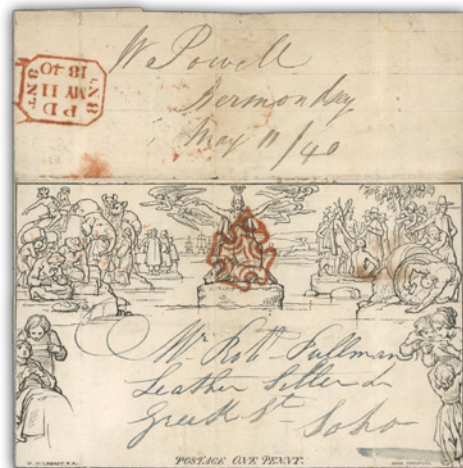 W Powell
Bermondsey
May 11/40
8NT
PD
MY 11
1840
Mr Robt Pullman
Leather Seller &
Greek St Soho
W. MULREADY, R.A.
POSTAGE ONE PENNY.
JOHN THOMPSON